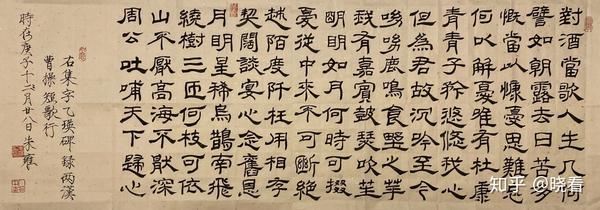 對酒當歌人生几何
譬如朝露去日苦多
慨當以慷憂思難忘
何以解憂唯有杜康
青青子衿悠悠我心
但為君故沉吟至今
呦呦鹿鳴食埜之苹
我有嘉賓鼓瑟吹笙
明明如月何時可掇
憂從中來不可斷絕
越陌度阡枉用相存
契闊談宴心念舊恩
月明星稀烏鵲南飛
繞樹三匝何枝可依
山不厭高海不猒深
周公吐哺天下歸心
右集字乙瑛碑錄兩漢
曹操短歌行
時在庚子十二月廿八日朱
知乎 @晓看